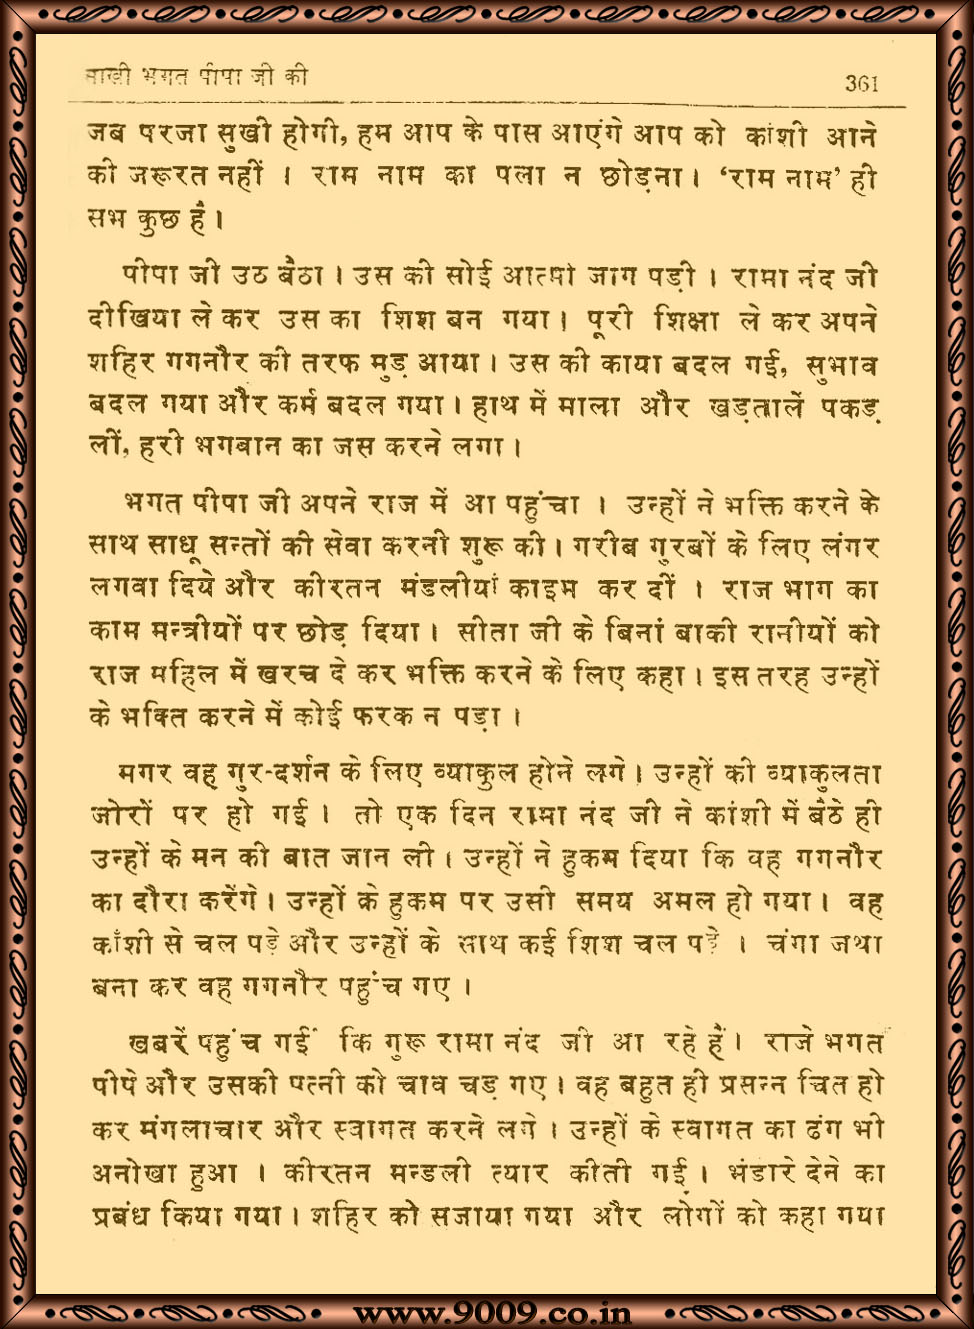 साखी भगत पीपा जी की 361
जब परजा सुखी होगी, हम आप के पास आएंगे आप को कांशी आने
की जरूरत नहीं । राम नाम का पला न छोड़ना । ‘राम नाम’ ही
सभ कुछ है ।
पीपा जी उठ बैठा । उस की सोई आत्मा जाग पड़ी । रामा नंद जी
दीखिया ले कर उस का शिश बन गया । पूरी शिक्षा ले कर अपने
शहिर गगनौर की तरफ मुड़ आया । उस की काया बदल गई, सुभाव
बदल गया और कर्म बदल गया । हाथ में माला और खड़तालें पकड़
लीं, हरी भगबान का जस करने लगा ।
भगत पीपा जी अपने राज में आ पहुंचा । उन्हों ने भक्ति करने के
साथ साधू सन्तों की सेवा करनी शुरू की । गरीब गुरबों के लिए लंगर
लगवा दिये और कीरतन मंडलीयां काइम कर दीं । राज भाग का
काम मन्त्रीयों पर छोड़ दिया । सीता जी के बिनां बाकी रानीयों को
राज महिल में खरच दे कर भक्ति करने के लिए कहा । इस तरह उन्हों
के भक्ति करने में कोई फरक न पड़ा ।
मगर वह गुर-दर्शन के लिए व्याकुल होने लगे । उन्हों की व्याकुलता
जोरों पर हो गई । तो एक दिन रामा नंद जी ने कांशी में बैठे ही
उन्हों के मन की बात जान ली । उन्हों ने हुकम दिया कि वह गगनौर
का दौरा करेंगे । उन्हों के हुकम पर उसी समय अमल हो गया । वह
काँशी से चल पड़े और उन्हों के साथ कई शिश चल पड़े । चंगा जथा
बना कर वह गगनौर पहुंच गए ।
खबरें पहुंच गईं कि गुरू रामा नंद जी आ रहे हैं । राजे भगत
पीपे और उसकी पत्नी को चाव चड़ गए । वह बहुत ही प्रसन्न चित हो
कर मंगलाचार और स्वागत करने लगे । उन्हों के स्वागत का ढंग भी
अनोखा हुआ । कीरतन मन्डली त्यार कीती गई । भंडारे देने का
प्रबंध किया गया । शहिर को सजाया गया और लोगों को कहा गया
www.9009.co.in